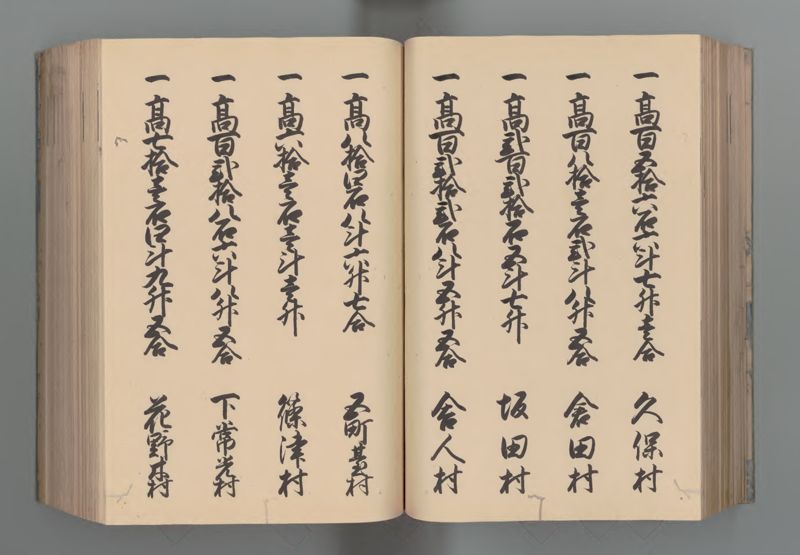 一高百五拾六石六斗七升壱合 久保村
一高百八拾壱石弐斗八升五合 倉田村
一高弐百弐拾石五斗七升 坂田村
一高百弐拾弐石八斗五升五合 舎人村
一高八拾四石八斗六升七合 五町臺村
一高六拾壱石壱斗壱升 篠津村
一高百弐拾八石六斗八升五合 下常光村
一高七拾壱石四斗九升五合 花野木村